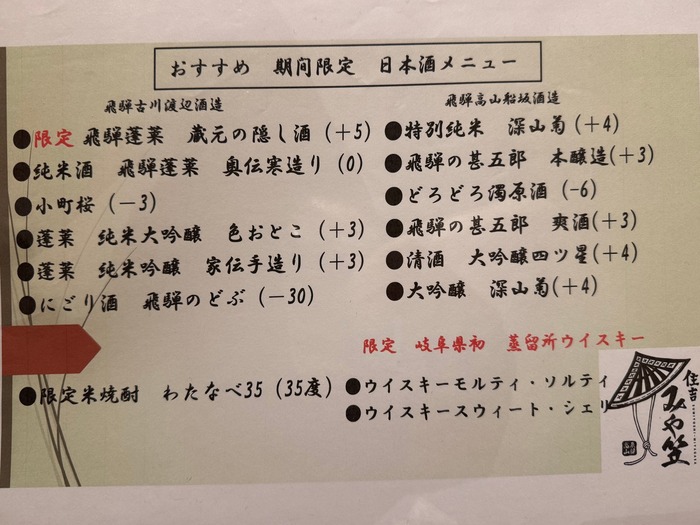 おすすめ　期間限定　日本酒メニュー
飛騨古川渡辺酒造
●限定 飛騨蓬莱　蔵元の隠し酒（＋5）
●純米酒　飛騨蓬莱　奥伝寒造り（0）
●小町桜（－3）
●蓬莱　純米大吟醸　色おとこ（＋3）
●蓬莱　純米吟醸　家伝手造り（＋3）
●にごり酒　飛騨のどぶ（－30）
●限定米焼酎　わたなべ35（35度）
飛騨高山船坂酒造
●特別純米　深山菊(＋4)
●飛騨の甚五郎　本醸造(＋3)
●どろどろ濁原酒（-6）
●飛騨の甚五郎　爽酒(＋3)
●清酒　大吟醸四ツ星(＋4)
●大吟醸　深山菊(＋4)
限定　岐阜県初　蒸留所ウイスキー
●ウイスキーモルティ・ソルティ
●ウイスキースウィート・シェリ
住吉
みや笠